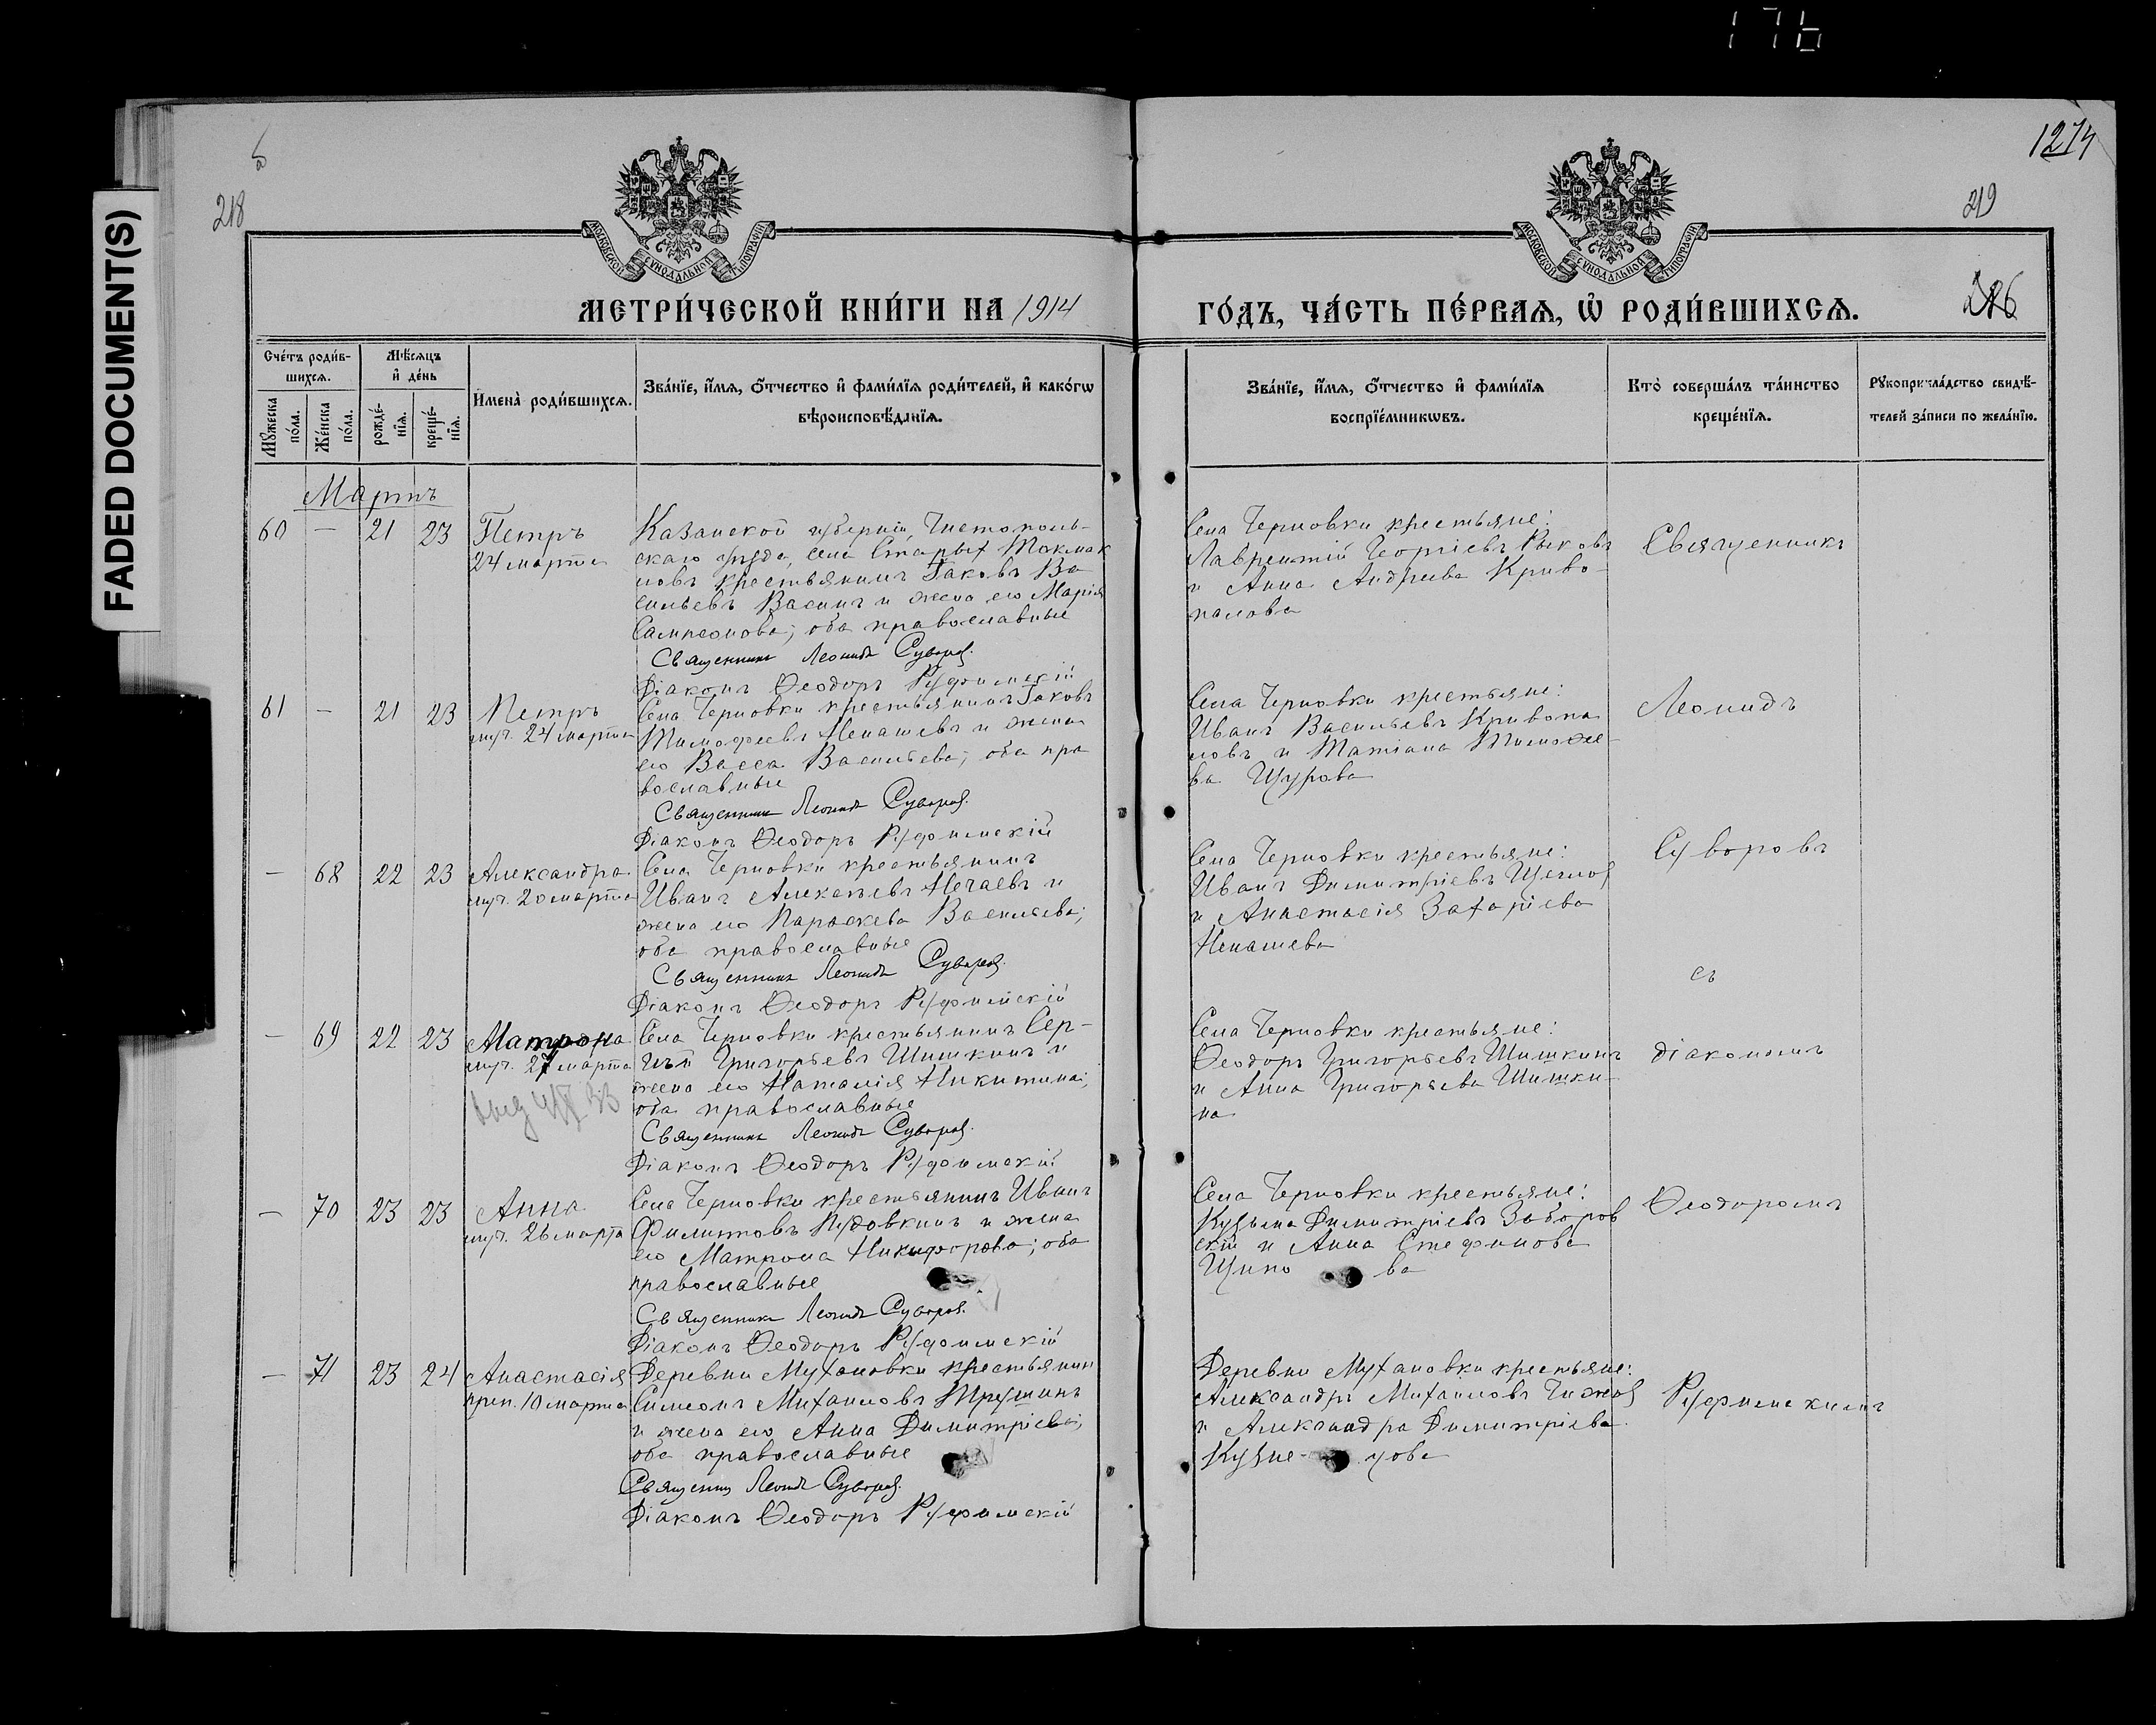 176
FADED DOCUMENT(S)
218
1274
219
МОСКОВСКОЙ СѴНОДАЛЬНОЙ ТИПОГРАФІИ
МОСКОВСКОЙ СѴНОДАЛЬНОЙ ТИПОГРАФІИ
МЕТРИ́ЧЕСКОЙ КНИ́ГИ НА 1914
ГО́ДЪ, ЧА́СТЬ ПЕ́РВАѦ, Ѽ РОДИ́ВШИХСѦ.
Сче́тъ роди́в-
шихсѧ.
Мѣ́сяцъ
и҆ де́нь
Мꙋ́жеска
по́ла.
Же́нска
по́ла.
рожде́-
нїѧ.
креще́-
нїѧ.
И҆мена̀ роди́вшихсѧ.
Зва́нїе, и҆́мѧ, ѻ҆́тчество и҆ фами́лїѧ роди́телей, и҆ како́гѡ
вѣроисповѣ́данїѧ.
Зва́нїе, и҆́мѧ, ѻ҆́тчество и҆ фами́лїѧ
воспрїе́мникѡвъ.
Кто̀ соверша́лъ та́инство
креще́нїѧ.
Рꙋкоприкла́дство свидѣ́-
телей за́писи по жела́нїю.
Мартъ
60 — 21 23 Петръ
24 марта
Казанской губерніи, Чистополь-
скаго уѣзда, села Старыхъ Токмак
ловъ крестьянинъ Іаковъ Ва
сильевъ Васинъ и жена его Марія
Сампсонова; оба православные
Священникъ Леонидъ Суворов.
Діаконъ Ѳеодоръ Руфимскій
Села Черновки крестьяне:
Лаврентій Георгіевъ Рыковъ
и Анна Андреева Криво-
палова
Священникъ
61 — 21 23 Петръ
муч. 24 марта
Села Черновки крестьянинъ Іаковъ
Тимофеевъ Ненашевъ и жена
его Васса Васильева; оба пра
вославные
Священникъ Леонидъ Суворов.
Діаконъ Ѳеодоръ Руфимскій
Села Черновки крестьяне:
Иванъ Васильевъ Кривопа
ловъ и Татіана Тимоѳее-
ва Щурова
Леонидъ
— 68 22 23 Александра
муч. 20 марта
Села Черновки крестьянинъ
Иванъ Алексѣевъ Нечаевъ и
жена его Параскева Васильева;
оба православные
Священникъ Леонидъ Суворов.
Діаконъ Ѳеодоръ Руфимскій
Села Черновки крестьяне:
Иванъ Димитріевъ Щеглов
и Анастасія Захаріева
Ненашева
Суворовъ
съ
— 69 22 23 Матрона
муч. 27 марта
Села Черновки крестьянинъ Сер-
гѣй Григорьевъ Шишкинъ и
жена его Наталія Никитина;
оба православные
Священникъ Леонидъ Суворов.
Діаконъ Ѳеодоръ Руфимскій
Села Черновки крестьяне:
Ѳеодоръ Григорьевъ Шишкинъ
и Анна Григорьева Шишки-
на
діакономъ
— 70 23 23 Анна
муч. 26 марта
Села Черновки крестьянинъ Иванъ
Филиповъ Пудовкинъ и жена
его Матрона Никифорова; оба
православные
Священникъ Леонидъ Суворов.
Діаконъ Ѳеодоръ Руфимскій
Села Черновки крестьяне:
Кузьма Димитріевъ Заборов
скій и Анна Стефанова
Щипо ва
Ѳеодоромъ
— 71 23 24 Анастасія
преп. 10 марта
Деревни Мухановки крестьянин
Симеонъ Михаиловъ Трушинъ
и жена его Анна Димитріева;
оба православные
Священник Леонидъ Суворов.
Діаконъ Ѳеодоръ Руфимскій
Деревни Мухановки крестьяне:
Александръ Михаиловъ Чижов
и Александра Димитріева
Кузне- цова
Руфимскимъ